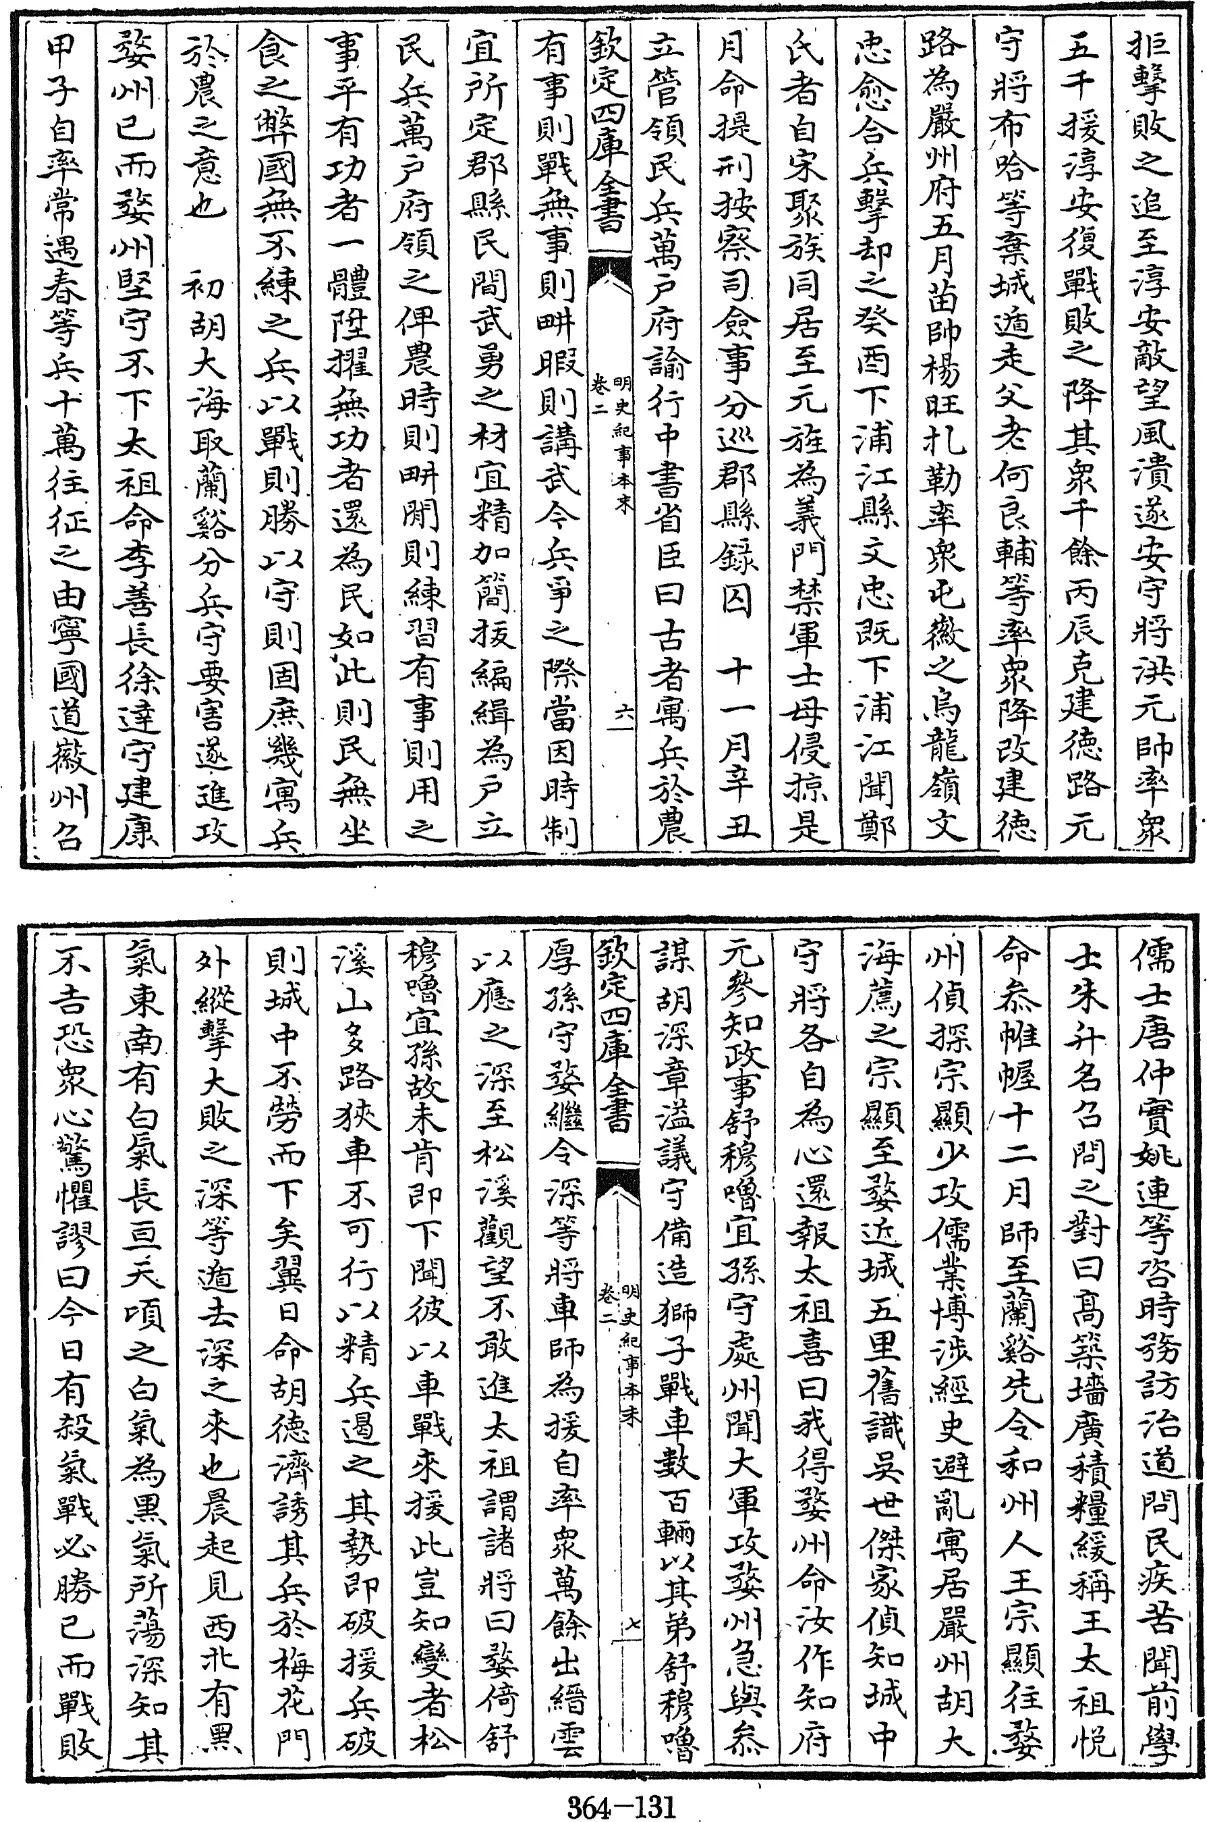 拒擊敗之追至淳安敵望風潰遂安守將洪元帥率衆
五千援淳安復戰敗之降其衆千餘丙辰克建德路元
守將布哈等棄城遁走父老何良輔等率衆降改建德
路為嚴州府五月苗帥楊旺扎勒率衆屯徽之烏龍嶺文
忠愈合兵擊却之癸酉下浦江縣文忠既下浦江聞鄭
氏者自宋聚族同居至元旌為義門禁軍士毋侵掠是
月命提刑按察司僉事分巡郡縣錄囚 十一月辛丑
立管領民兵萬戶府諭行中書省臣曰古者寓兵於農
欽定四庫全書
明史紀事本末
卷二
六
有事則戰無事則畊暇則講武今兵爭之際當因時制
宜所定郡縣民間武勇之材宜精加簡拔編緝為戶立
民兵萬戶府領之俾農時則畊閒則練習有事則用之
事平有功者一體陞擢無功者還為民如此則民無坐
食之弊國無不練之兵以戰則勝以守則固庶幾寓兵
於農之意也 初胡大海取蘭谿分兵守要害遂進攻
婺州已而婺州堅守不下太祖命李善長徐達守建康
甲子自率常遇春等兵十萬往征之由寧國道徽州召
儒士唐仲實姚連等咨時務訪治道問民疾苦聞前學
士朱升名召問之對曰高築墻廣積糧緩稱王太祖悅
命叅帷幄十二月師至蘭谿先令和州人王宗顯往婺
州偵探宗顯少攻儒業博涉經史避亂寓居嚴州胡大
海薦之宗顯至婺近城五里舊識吳世傑家偵知城中
守將各自為心還報太祖喜曰我得婺州命汝作知府
元參知政事舒穆嚕宜孫守處州聞大軍攻婺州急與叅
謀胡深章溢議守備造獅子戰車數百輛以其弟舒穆嚕
欽定四庫全書
明史紀事本末
卷二
七
厚孫守婺繼令深等將車師為援自率衆萬餘出縉雲
以應之深至松溪觀望不敢進太祖謂諸將曰婺倚舒
穆嚕宜孫故未肯即下聞彼以車戰來援此豈知變者松
溪山多路狹車不可行以精兵遏之其勢即破援兵破
則城中不勞而下矣翼日命胡德濟誘其兵於梅花門
外縱擊大敗之深等遁去深之來也晨起見西北有黑
氣東南有白氣長亘天頃之白氣為黑氣所蕩深知其
不吉恐衆心驚懼謬曰今日有殺氣戰必勝已而戰敗
364-131